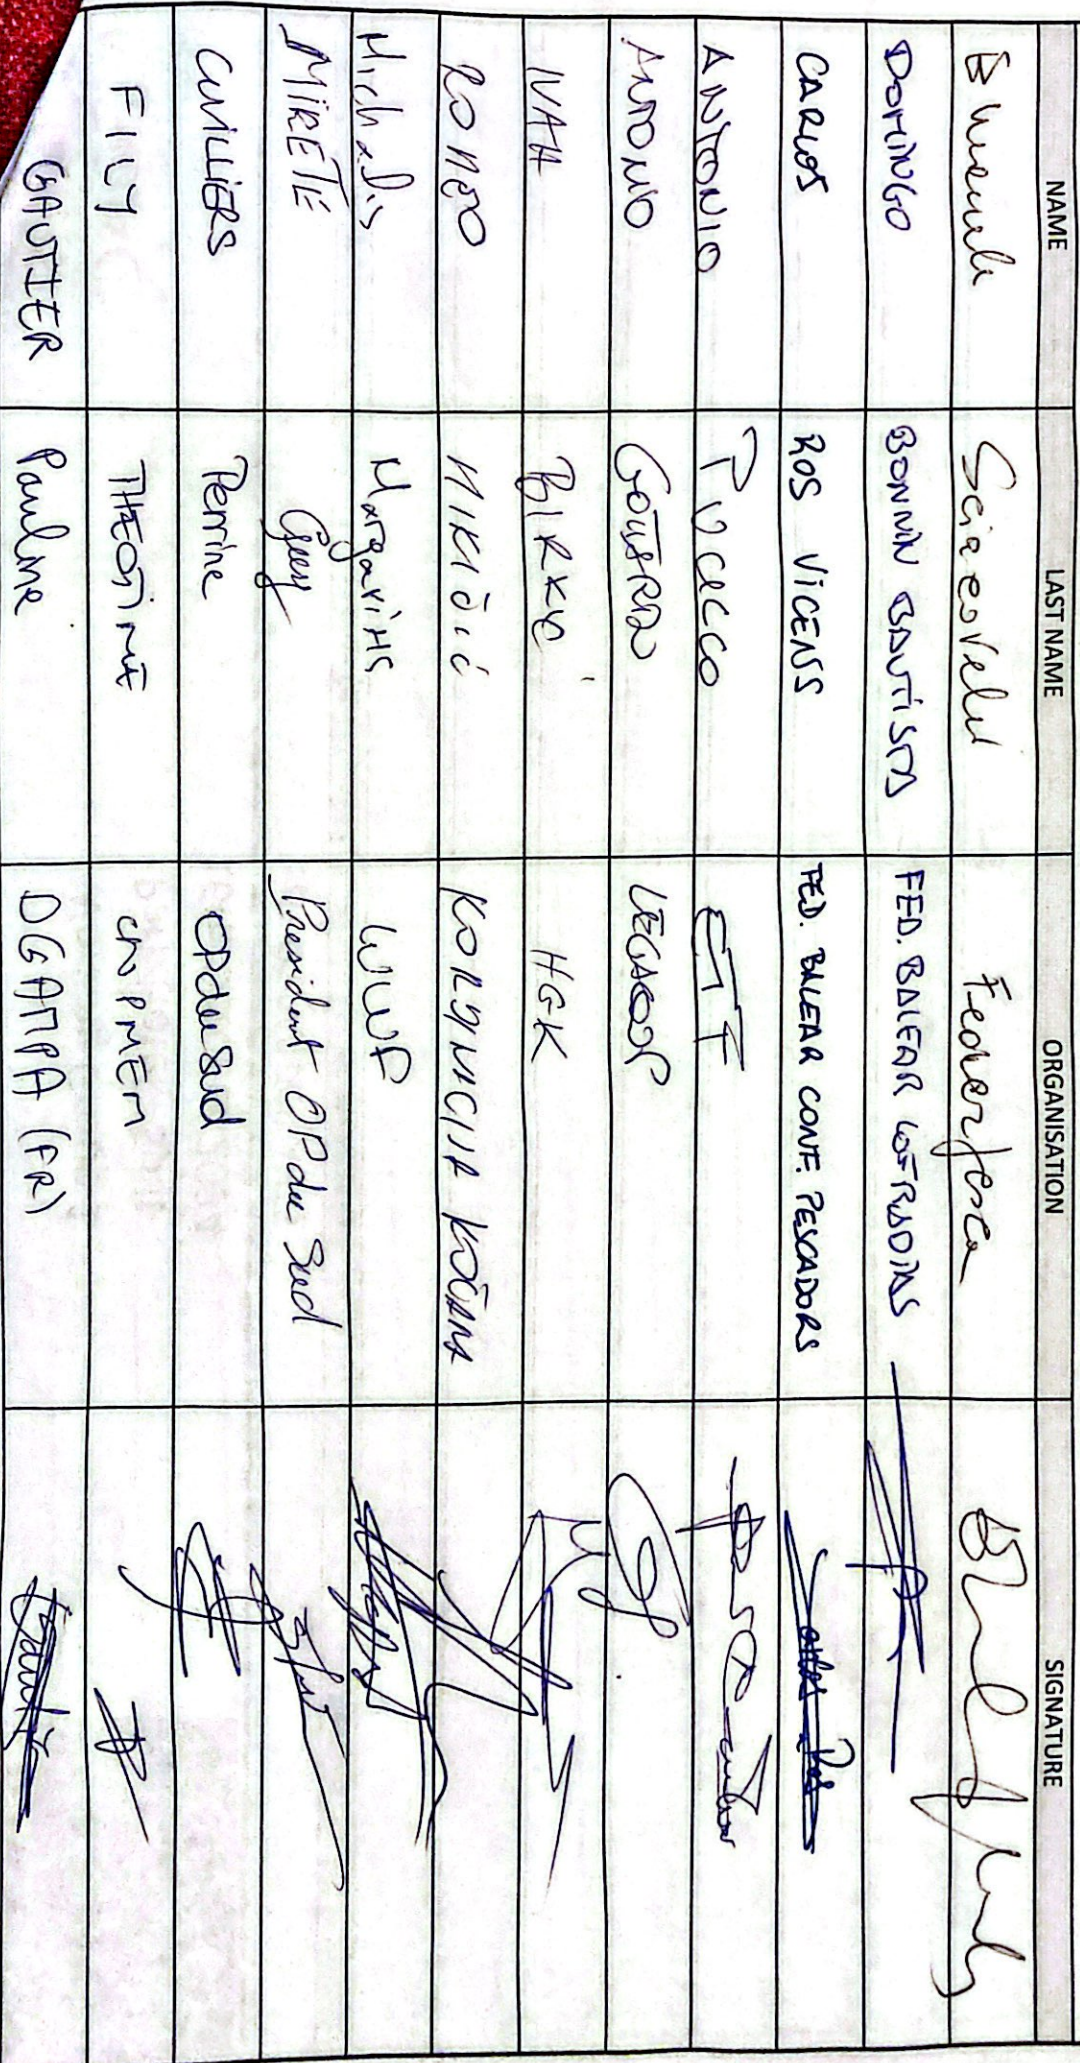 NAME LAST NAME ORGANISATION SIGNATURE
Emanuele Sciacovelli Federpesca
DOMINGO BONNIN BAUTISTA FED. BALEAR COFRADIAS
CARLOS ROS VICENS FED. BALEAR CONF. PESCADORS
ANTONIO PUCILLO ETF
ANTONIO GOTTARDO LEGACOOP
IVAN BIRKIĆ HGK
ROMEO MIKIČIĆ
Michalis Margaritis WWF
MIRETE Guy President OP du Sud
CUVILLIERS Perrine OP du Sud
FILY THEOTIME CNPMEM
GAUTIER Pauline DGAMPA (FR)